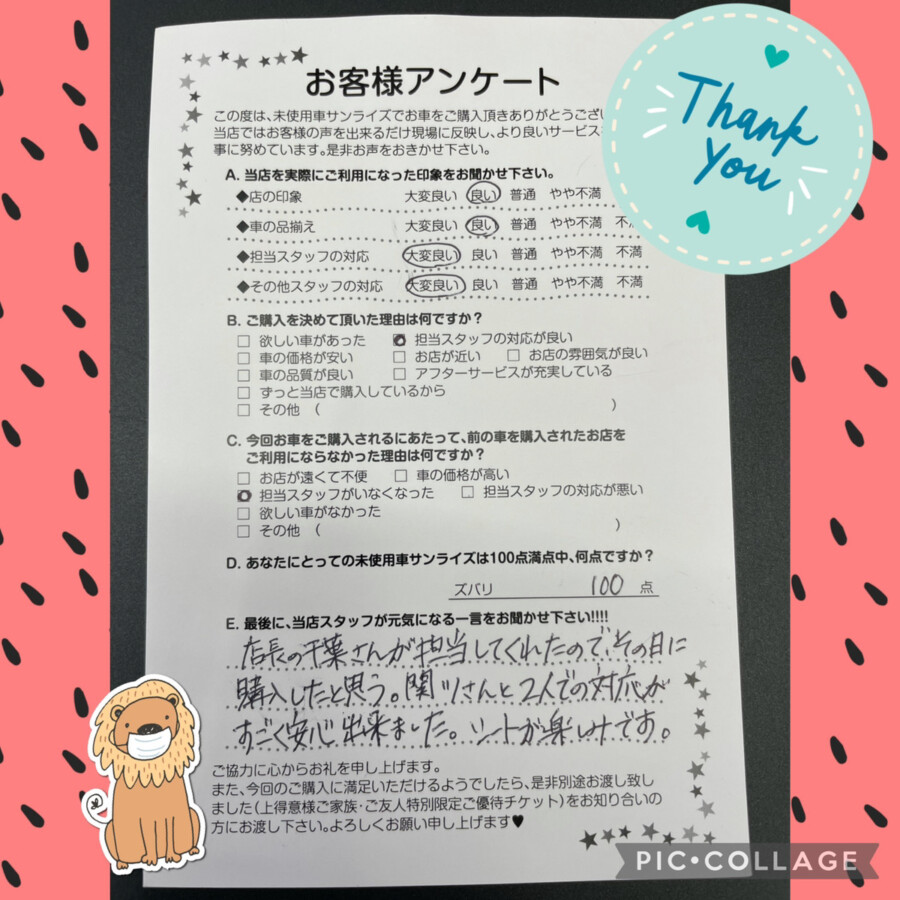 お客様アンケート
この度は、未使用車サンライズでお車をご購入頂きありがとうござい
当店ではお客様の声を出来るだけ現場に反映し、より良いサービス
事に努めています。是非お声をおきかせ下さい。
Thank
you
A. 当店を実際にご利用になった印象をお聞かせ下さい。
◆店の印象 大変良い 良い 普通 やや不満
◆車の品揃え 大変良い 良い 普通 やや不満 不
◆担当スタッフの対応 大変良い 良い 普通 やや不満 不満
◆その他スタッフの対応 大変良い 良い 普通 やや不満 不満
B. ご購入を決めて頂いた理由は何ですか？
□ 欲しい車があった 担当スタッフの対応が良い
□ 車の価格が安い □ お店が近い □ お店の雰囲気が良い
□ 車の品質が良い □ アフターサービスが充実している
□ ずっと当店で購入しているから
□ その他 （ ）
C. 今回お車をご購入されるにあたって、前の車を購入されたお店を
ご利用にならなかった理由は何ですか？
□ お店が遠くて不便 □ 車の価格が高い
担当スタッフがいなくなった □ 担当スタッフの対応が悪い
□ 欲しい車がなかった
□ その他 （ ）
D. あなたにとっての未使用車サンライズは100点満点中、何点ですか？
ズバリ 100 点
E. 最後に、当店スタッフが元気になる一言をお聞かせ下さい!!!!
店長の千葉さんが担当してくれたので、その日に
購入したと思う。関ツさんと2人での対応が
すごく安心出来ました。シートが楽しみです。
ご協力に心からお礼を申し上げます。
また、今回のご購入に満足いただけるようでしたら、是非別途お渡し致し
ました（上得意様ご家族・ご友人特別限定ご優待チケット）をお知り合いの
方にお渡し下さい。よろしくお願い申し上げます♥
PIC•COLLAGE